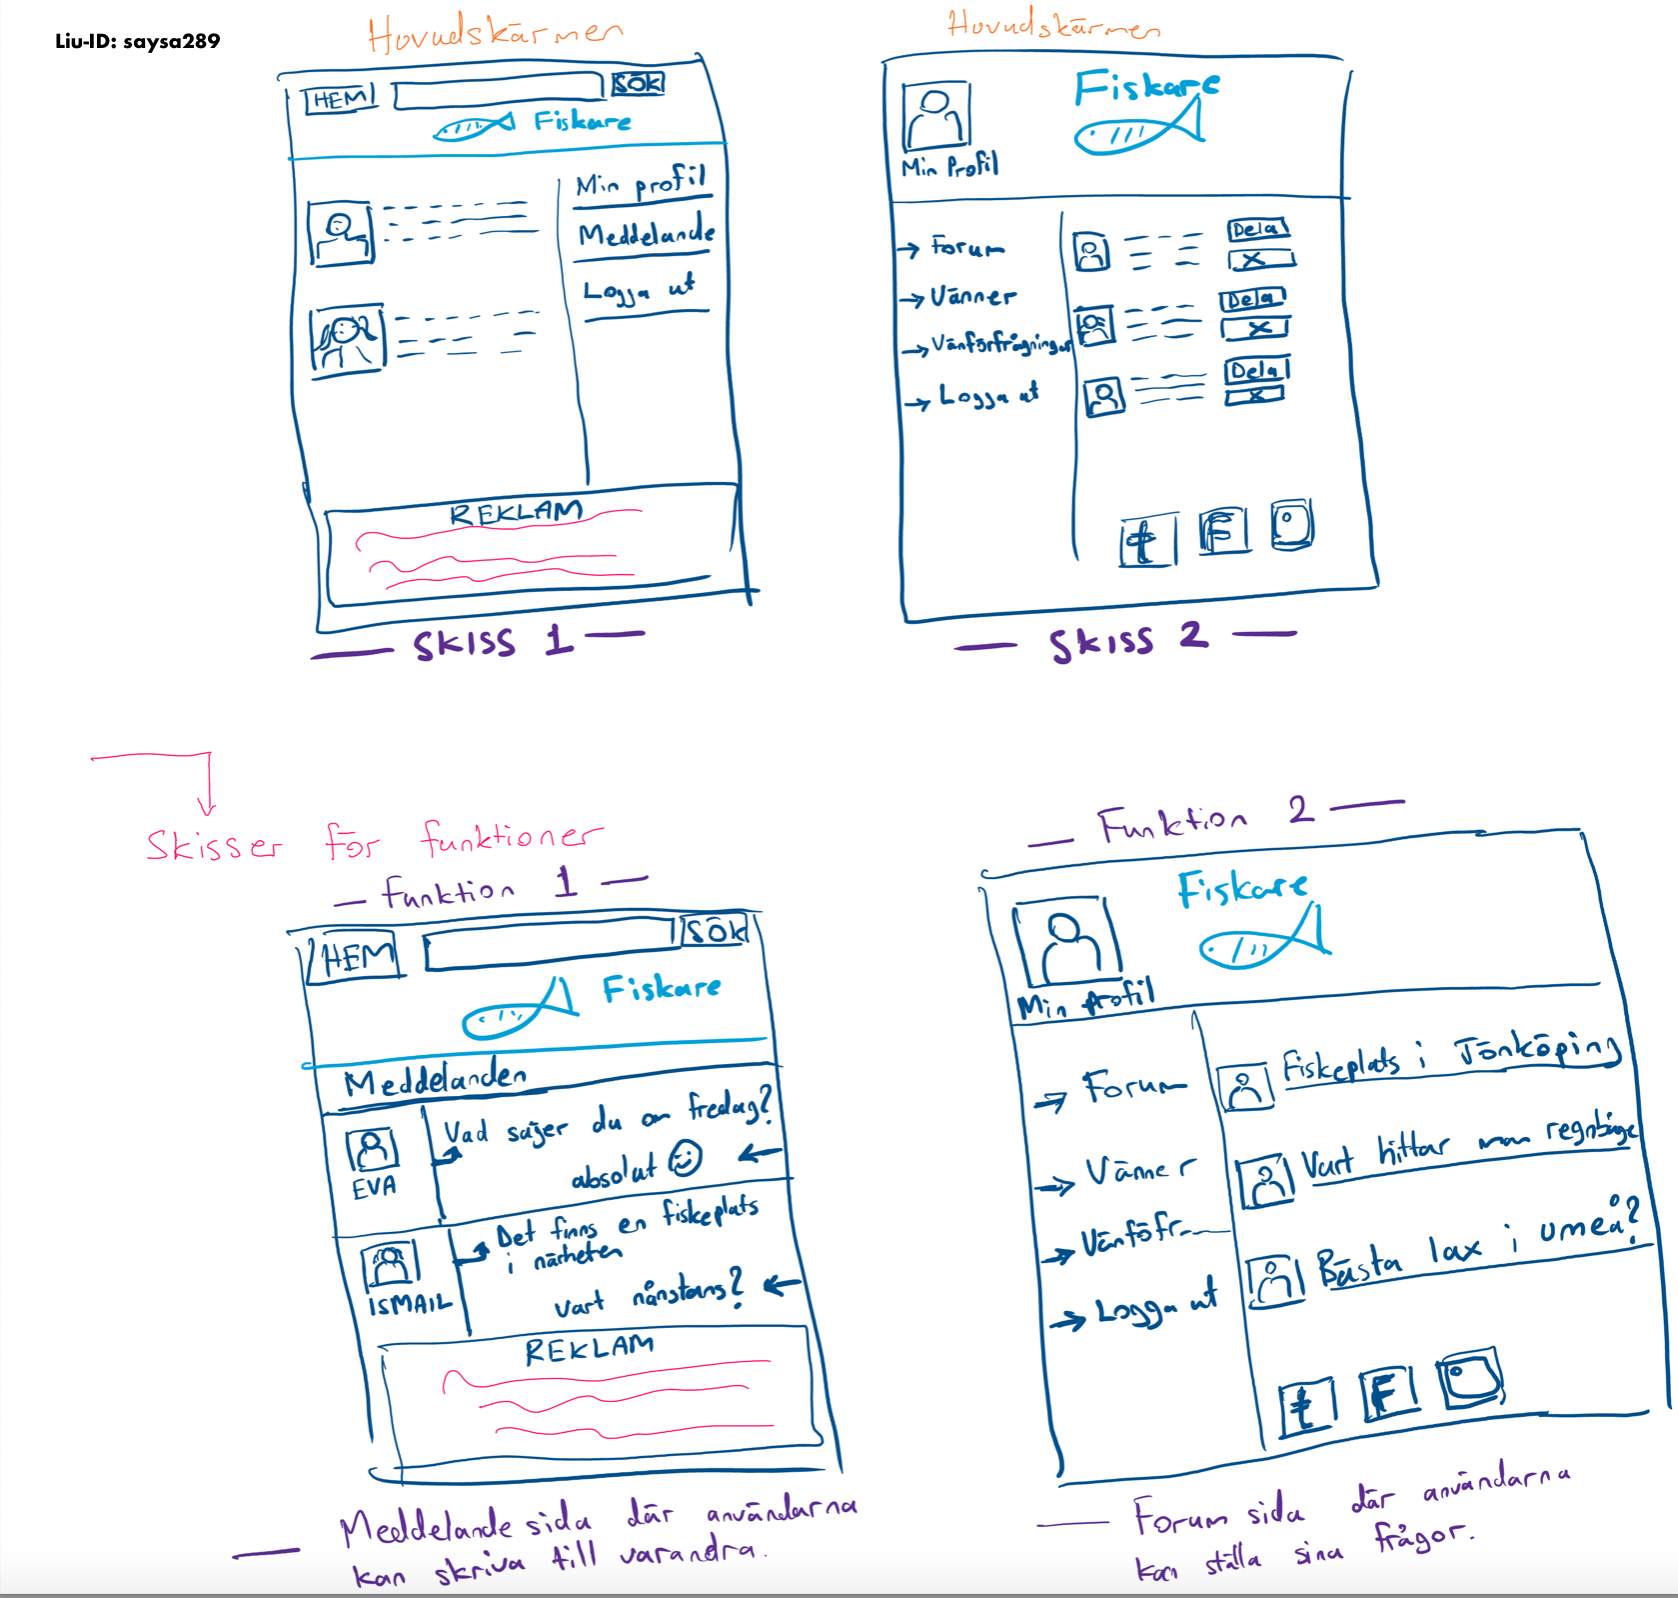 Liu-ID: saysa289
Hovudskärmen
HEM
SÖK
Fiskare
Min profil
Meddelande
Logga ut
REKLAM
SKISS 1
Hovudskärmen
Fiskare
Min Profil
→ Forum
→ Vänner
→ Vänförfrågningar
→ Logga ut
Dela
X
Dela
X
Dela
X
t F
SKISS 2
Skisser för funktioner
Funktion 1
HEM
SÖK
Fiskare
Meddelanden
EVA
Vad säjer du om fredag?
absolut
ISMAIL
Det finns en fiskeplats
i närheten
vart nånstans?
REKLAM
Meddelande sida där användarna
kan skriva till varandra.
Funktion 2
Fiskare
Min profil
→ Forum
→ Vänner
→ Vänföfr
→ Logga ut
Fiskeplats i Jönköping
Vart hittar man regnbåge
Bästa lax i umeå?
t F
Forum sida där användarna
kan ställa sina frågor.